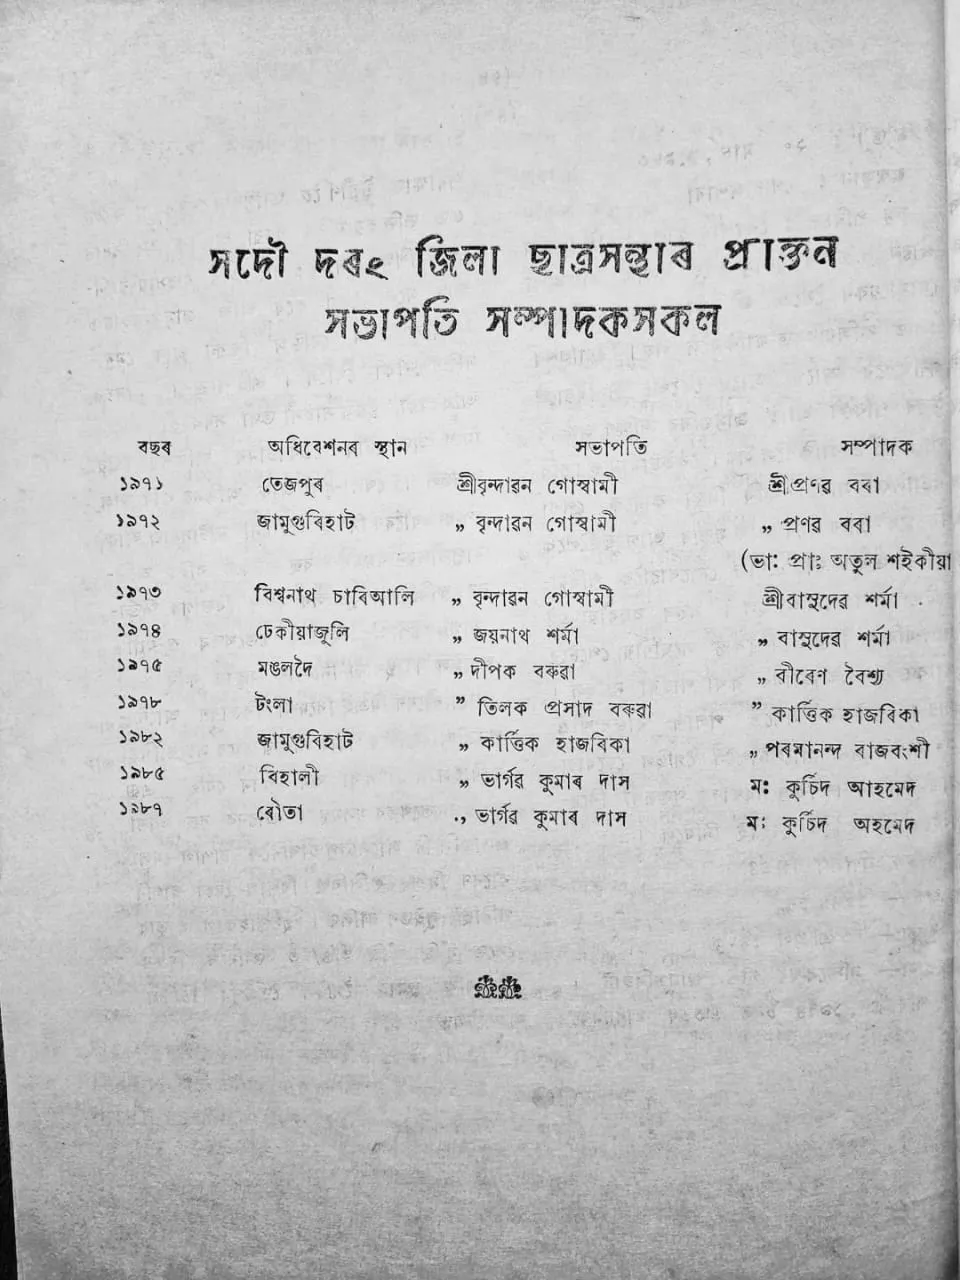 সদৌ দৰং জিলা ছাত্ৰসন্থাৰ প্ৰাক্তন
সভাপতি সম্পাদকসকল
বছৰ অধিবেশনৰ স্থান সভাপতি সম্পাদক
১৯৭১ তেজপুৰ শ্ৰীবৃন্দাৱন গোস্বামী শ্ৰীপ্ৰণৱ বৰা
১৯৭২ জামুগুৰিহাট „ বৃন্দাৱন গোস্বামী „ প্ৰণৱ বৰা
(ভা: প্ৰাঃ অতুল শইকীয়া
১৯৭৩ বিশ্বনাথ চাৰিআলি „ বৃন্দাৱন গোস্বামী শ্ৰীবাসুদেৱ শৰ্মা
১৯৭৪ ঢেকীয়াজুলি „ জয়নাথ শৰ্মা „ বাসুদেৱ শৰ্মা
১৯৭৫ মঙলদৈ „ দীপক বৰুৱা „ বীৰেণ বৈশ্য
১৯৭৮ টংলা ” তিলক প্ৰসাদ বৰুৱা ” কাৰ্ত্তিক হাজৰিকা
১৯৮২ জামুগুৰিহাট „ কাৰ্ত্তিক হাজৰিকা „ পৰমানন্দ ৰাজবংশী
১৯৮৫ বিহালী „ ভাৰ্গৱ কুমাৰ দাস ম: কুৰ্চিদ আহমেদ
১৯৮৭ ৰৌতা ., ভাৰ্গৱ কুমাৰ দাস ম: কুৰ্চিদ অহমেদ